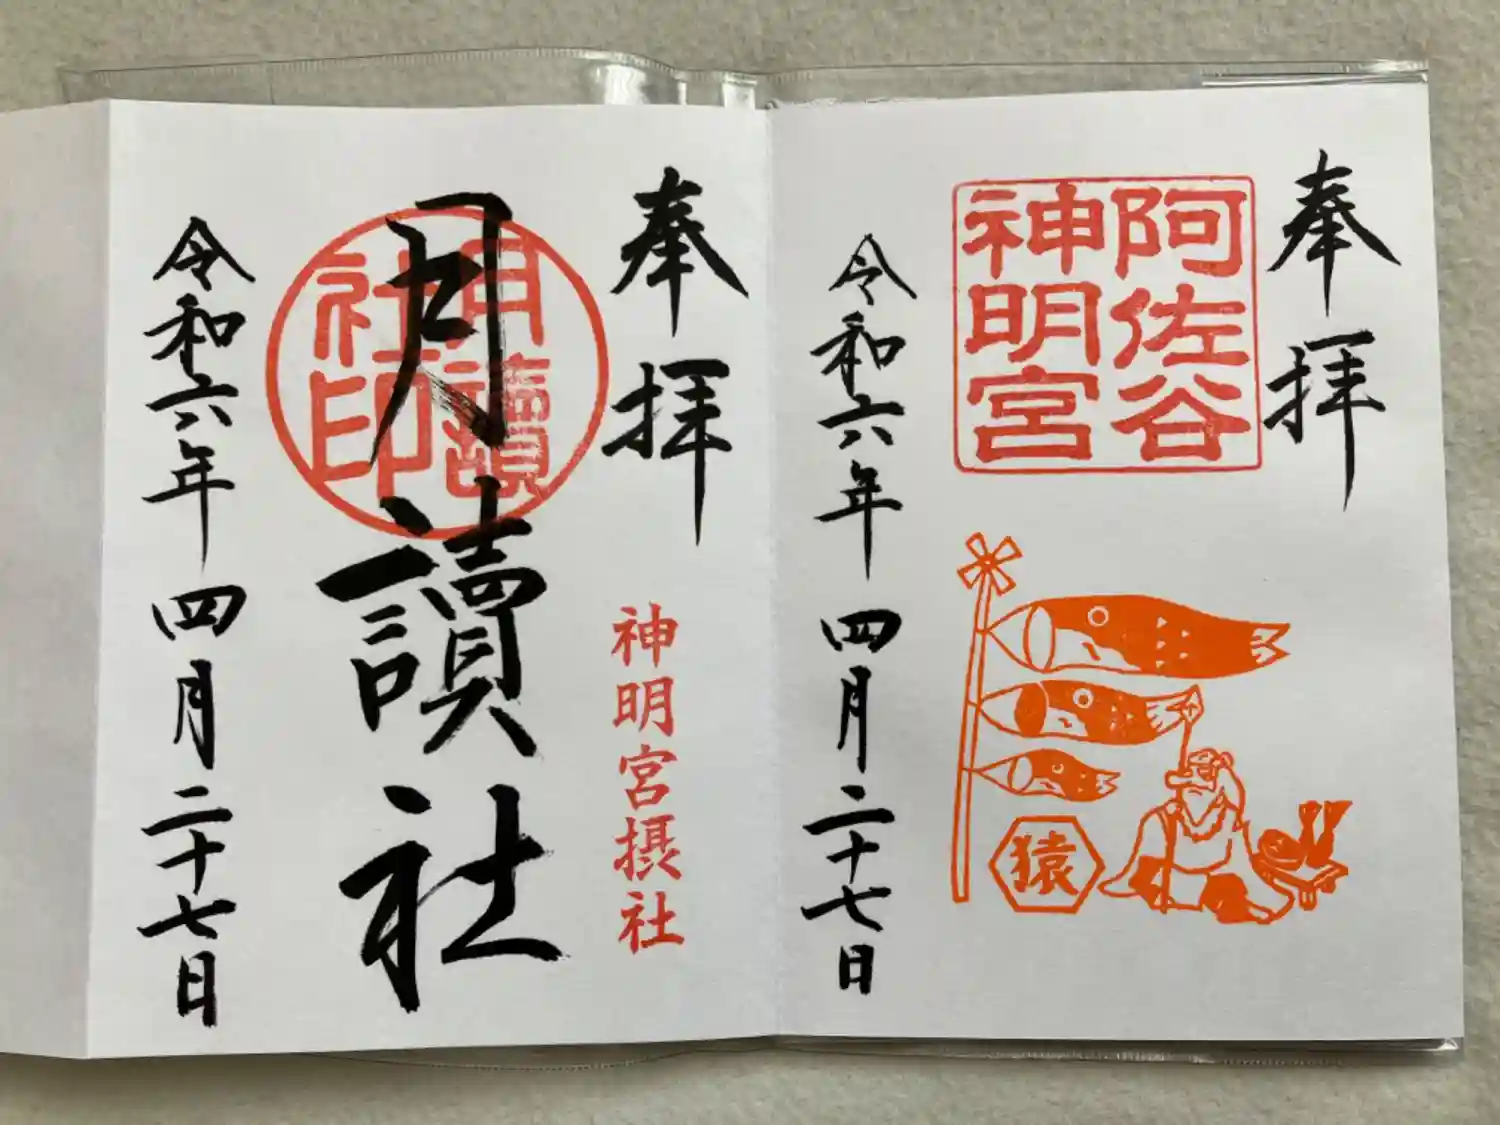 奉拝
阿佐谷
神明宮
猿
令和六年四月二十七日
奉拝
神明宮摂社
月讀
社印
月讀社
令和六年四月二十七日